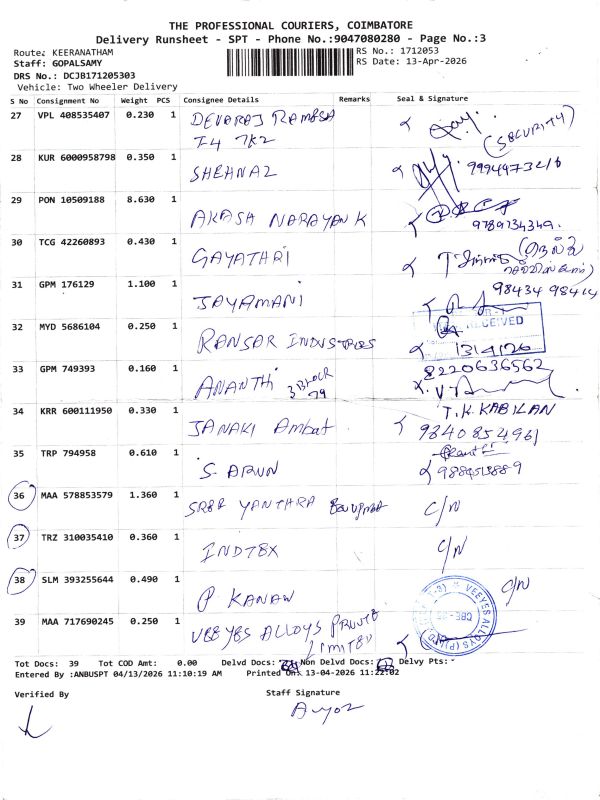 THE PROFESSIONAL COURIERS, COIMBATORE
Delivery Runsheet - SPT - Phone No.:9047080280 - Page No.:3
Route: KEERANATHAM
RS No.: 1712053
Staff: GOPALSAMY
RS Date: 13-Apr-2026
DRS No.: DCJB171205303
Vehicle: Two Wheeler Delivery
S No Consignment No Weight PCS Consignee Details Remarks Seal & Signature
27 VPL 408535407 0.230 1 DEVARAJ RAMESA
I4 7K2
(SECURITY)
28 KUR 6000958798 0.350 1 SHEHNAZ
29 PON 10509188 8.630 1 AKASH NARAYAN K
9789734349.
30 TCG 42260893 0.430 1 GAYATHRI
31 GPM 176129 1.100 1 JAYAMANI
98434 98414
32 MYD 5686104 0.250 1 RANSAR INDUSTRIES
RECEIVED
13/4/26
33 GPM 749393 0.160 1 ANANTHi 3 BLOCK 79
8220636562
34 KRR 600111950 0.330 1 JANAKI Ambat
T.K.KABILAN
9840854961
35 TRP 794958 0.610 1 S. ARUN
36 MAA 578853579 1.360 1 SREE YANTHRA
C/N
37 TRZ 310035410 0.360 1 INDTEX C/N
38 SLM 393255644 0.490 1 P KANAN C/N
39 MAA 717690245 0.250 1 VEEYES ALLOYS PRIVATE
LIMITED
VEEYES ALLOYS (P)
Tot Docs: 39 Tot COD Amt: 0.00 Delvd Docs: Non Delvd Docs: Delvy Pts:
Entered By :ANBUSPT 04/13/2026 11:10:19 AM Printed On: 13-04-2026 11:22:02
Verified By Staff Signature